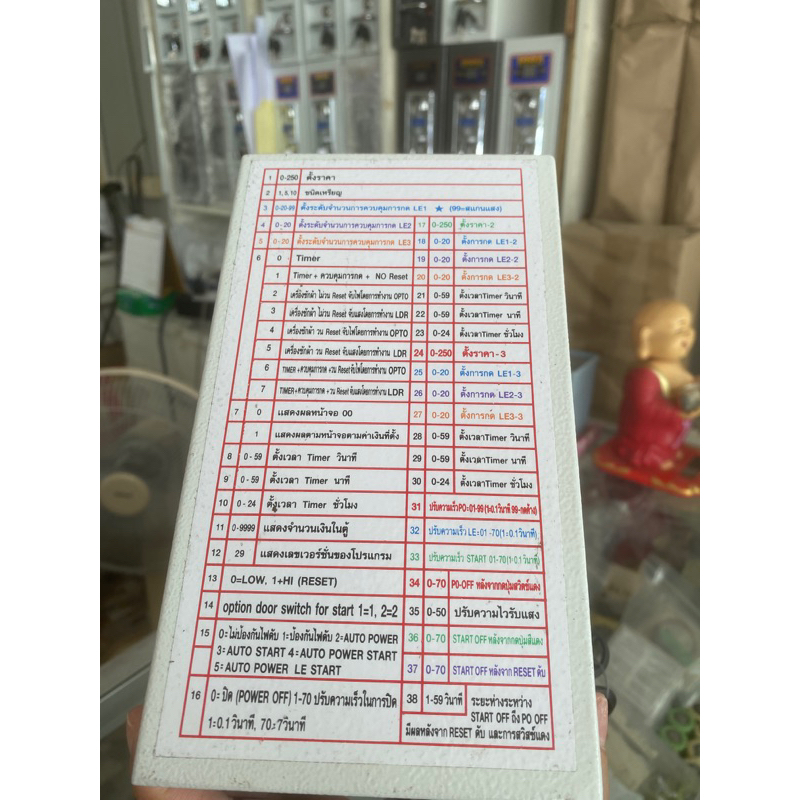 1 0-250 ตั้งราคา
2 1, 5, 10 ชนิดเหรียญ
3 0-20-99 ตั้งระดับจำนวนการควบคุมการกด LE1 ★ (99=สแกนแสง)
4 0-20 ตั้งระดับจำนวนการควบคุมการกด LE2 17 0-250 ตั้งราคา-2
5 0-20 ตั้งระดับจำนวนการควบคุมการกด LE3 18 0-20 ตั้งการกด LE1-2
6 0 Timer 19 0-20 ตั้งการกด LE2-2
1 Timer + ควบคุมการกด + NO Reset 20 0-20 ตั้งการกด LE3-2
2 เครื่องซักผ้า ไม่วน Reset จับไฟโดยการทำงาน OPTO 21 0-59 ตั้งเวลาTimer วินาที
3 เครื่องซักผ้า ไม่วน Reset จับแสงโดยการทำงาน LDR 22 0-59 ตั้งเวลาTimer นาที
4 เครื่องซักผ้า วน Reset จับไฟโดยการทำงาน OPTO 23 0-24 ตั้งเวลาTimer ชั่วโมง
5 เครื่องซักผ้า วน Reset จับแสงโดยการทำงาน LDR 24 0-250 ตั้งราคา-3
6 TIMER+ควบคุมการกด +วน Resetจับไฟโดยการทำงาน OPTO 25 0-20 ตั้งการกด LE1-3
7 TIMER+ควบคุมการกด +วน ResetจับแสงโดยการทำงานLDR 26 0-20 ตั้งการกด LE2-3
7 0 แสดงผลหน้าจอ 00 27 0-20 ตั้งการกด LE3-3
1 แสดงผลตามหน้าจอตามค่าเงินที่ตั้ง 28 0-59 ตั้งเวลาTimer วินาที
8 0-59 ตั้งเวลา Timer วินาที 29 0-59 ตั้งเวลาTimer นาที
9 0-59 ตั้งเวลา Timer นาที 30 0-24 ตั้งเวลาTimer ชั่วโมง
10 0-24 ตั้งเวลา Timer ชั่วโมง 31 ปรับความเร็วPO=01-99 (1=0.1วินาที 99=กดค้าง)
11 0-9999 แสดงจำนวนเงินในตู้ 32 ปรับความเร็ว LE=01 -70(1=0.1วินาที)
12 29 แสดงเลขเวอร์ชั่นของโปรแกรม 33 ปรับความเร็ว START 01-70(1=0.1วินาที)
13 0=LOW, 1+HI (RESET) 34 0-70 PO-OFF หลังจากกดปุ่มสวิตช์แดง
14 option door switch for start 1=1, 2=2 35 0-50 ปรับความไวรับแสง
15 0=ไม่ป้องกันไฟดับ 1=ป้องกันไฟดับ 2=AUTO POWER 36 0-70 START OFF หลังจากกดปุ่มสีแดง
3=AUTO START 4=AUTO POWER START
5=AUTO POWER LE START 37 0-70 START OFF หลังจาก RESET ดับ
16 0= ปิด (POWER OFF) 1-70 ปรับความเร็วในการปิด 38 1-59 วินาที ระยะห่างระหว่าง
START OFF ถึง PO OFF
1=0.1 วินาที, 70=7วินาที มีผลหลังจาก RESET ดับ และการสวิสช์แดง